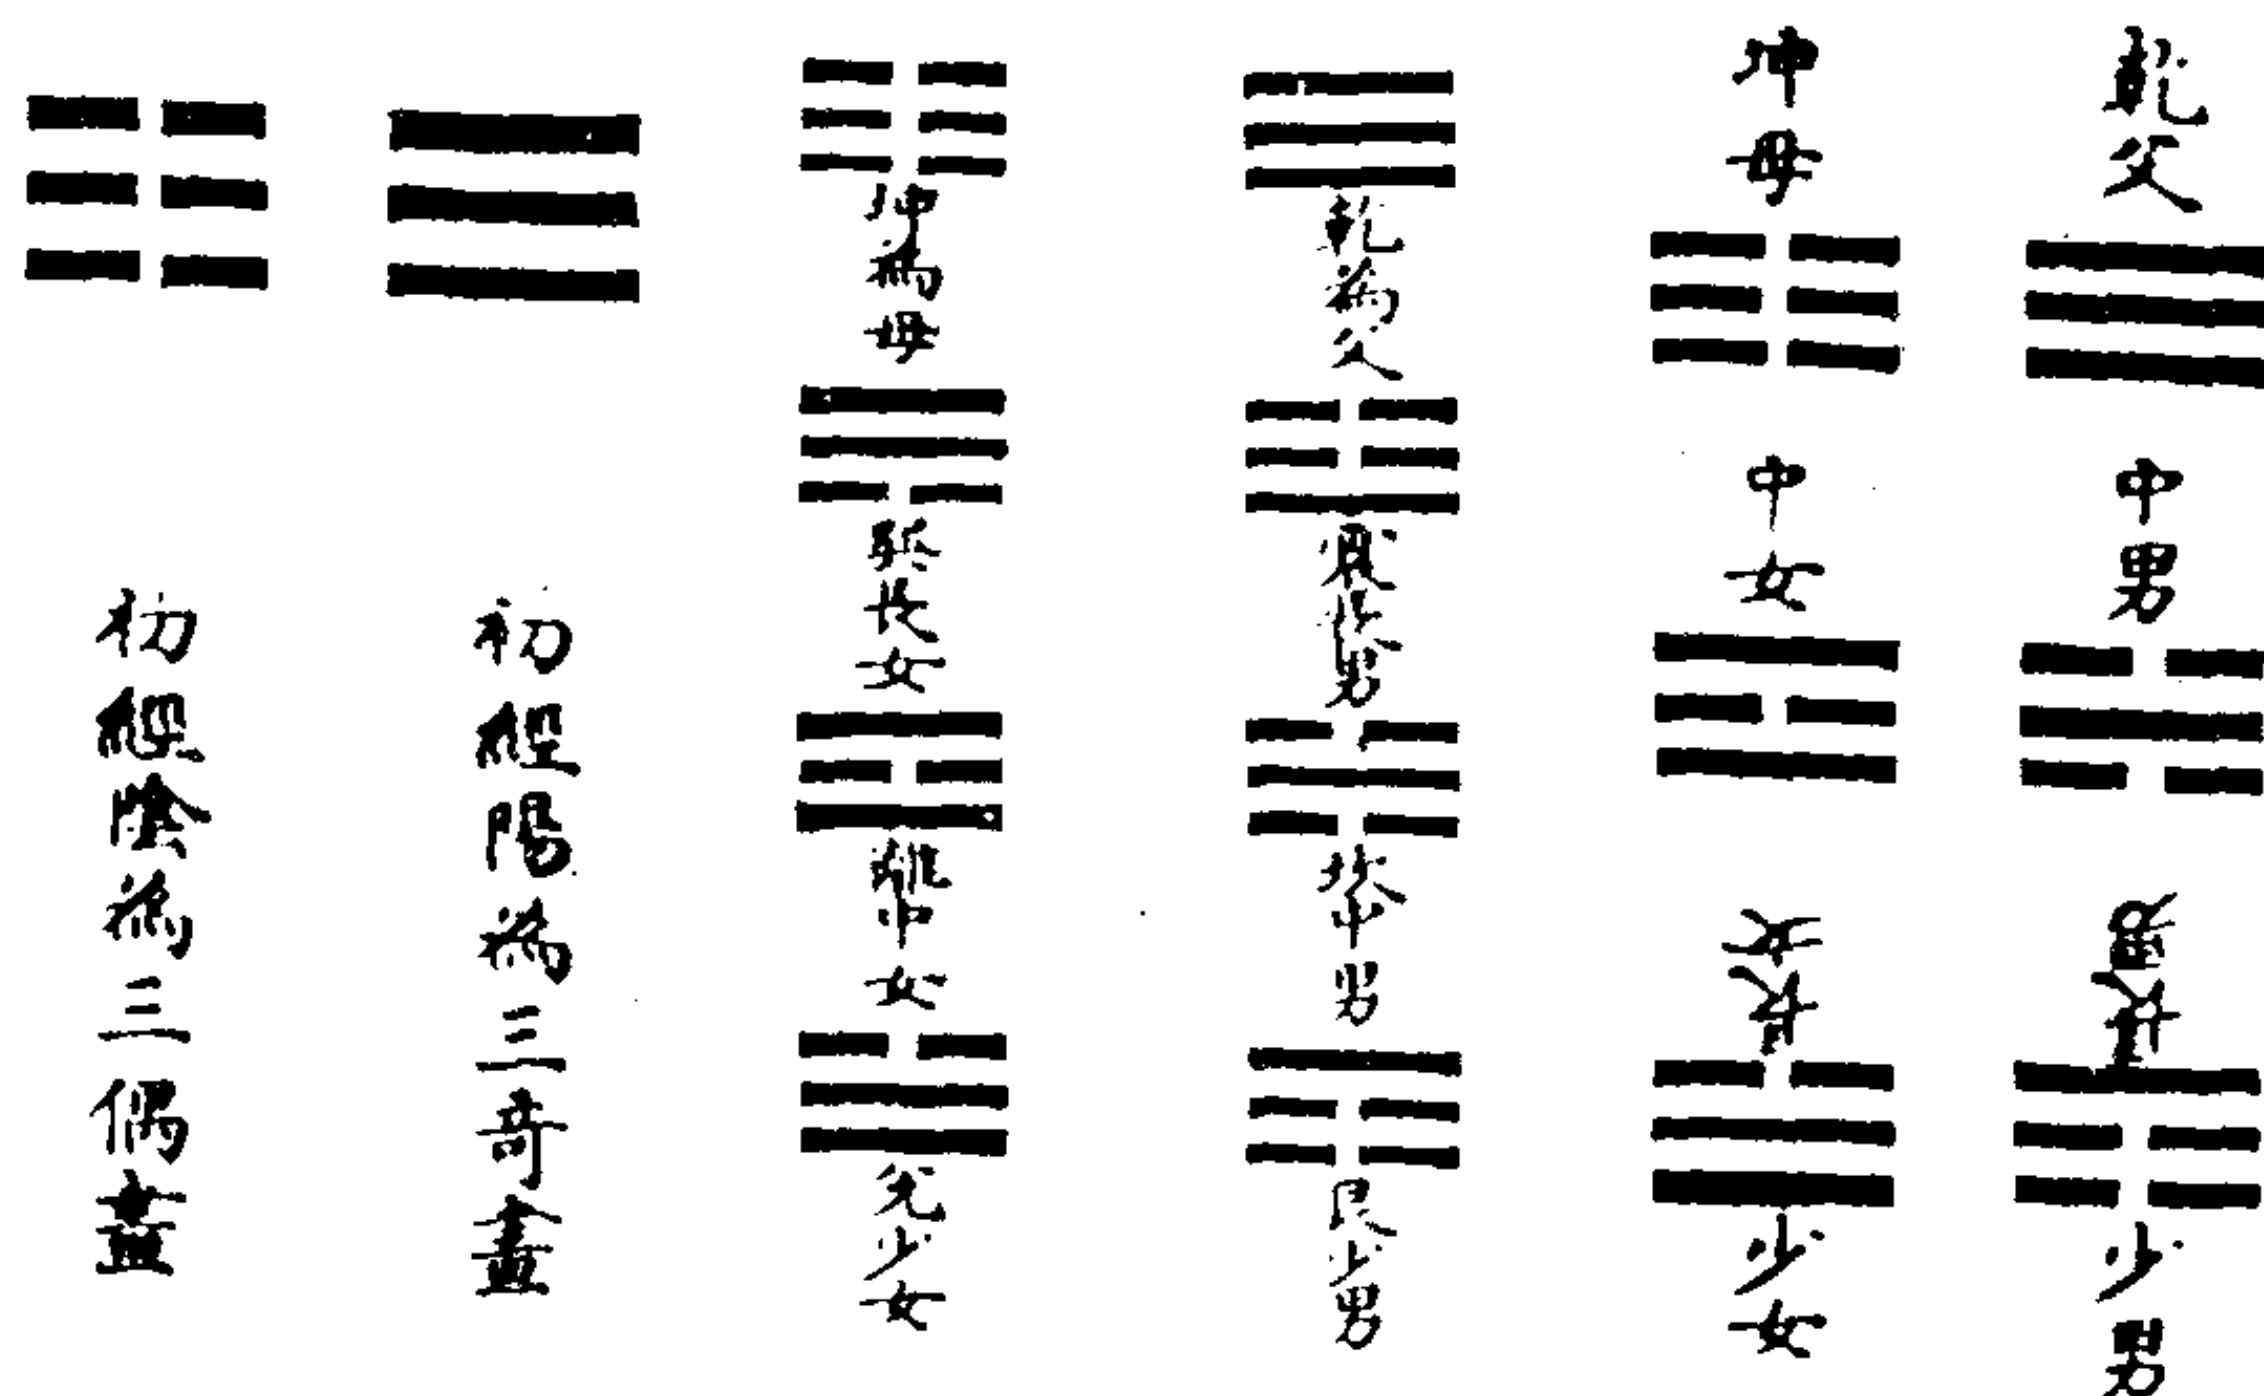 乾父
中男
長男
少男
坤母
中女
長女
少女
乾為父
震長男
坎中男
艮少男
坤為母
巽長女
離中女
兌少女
初經陽為三奇畫
初經陰為三偶畫